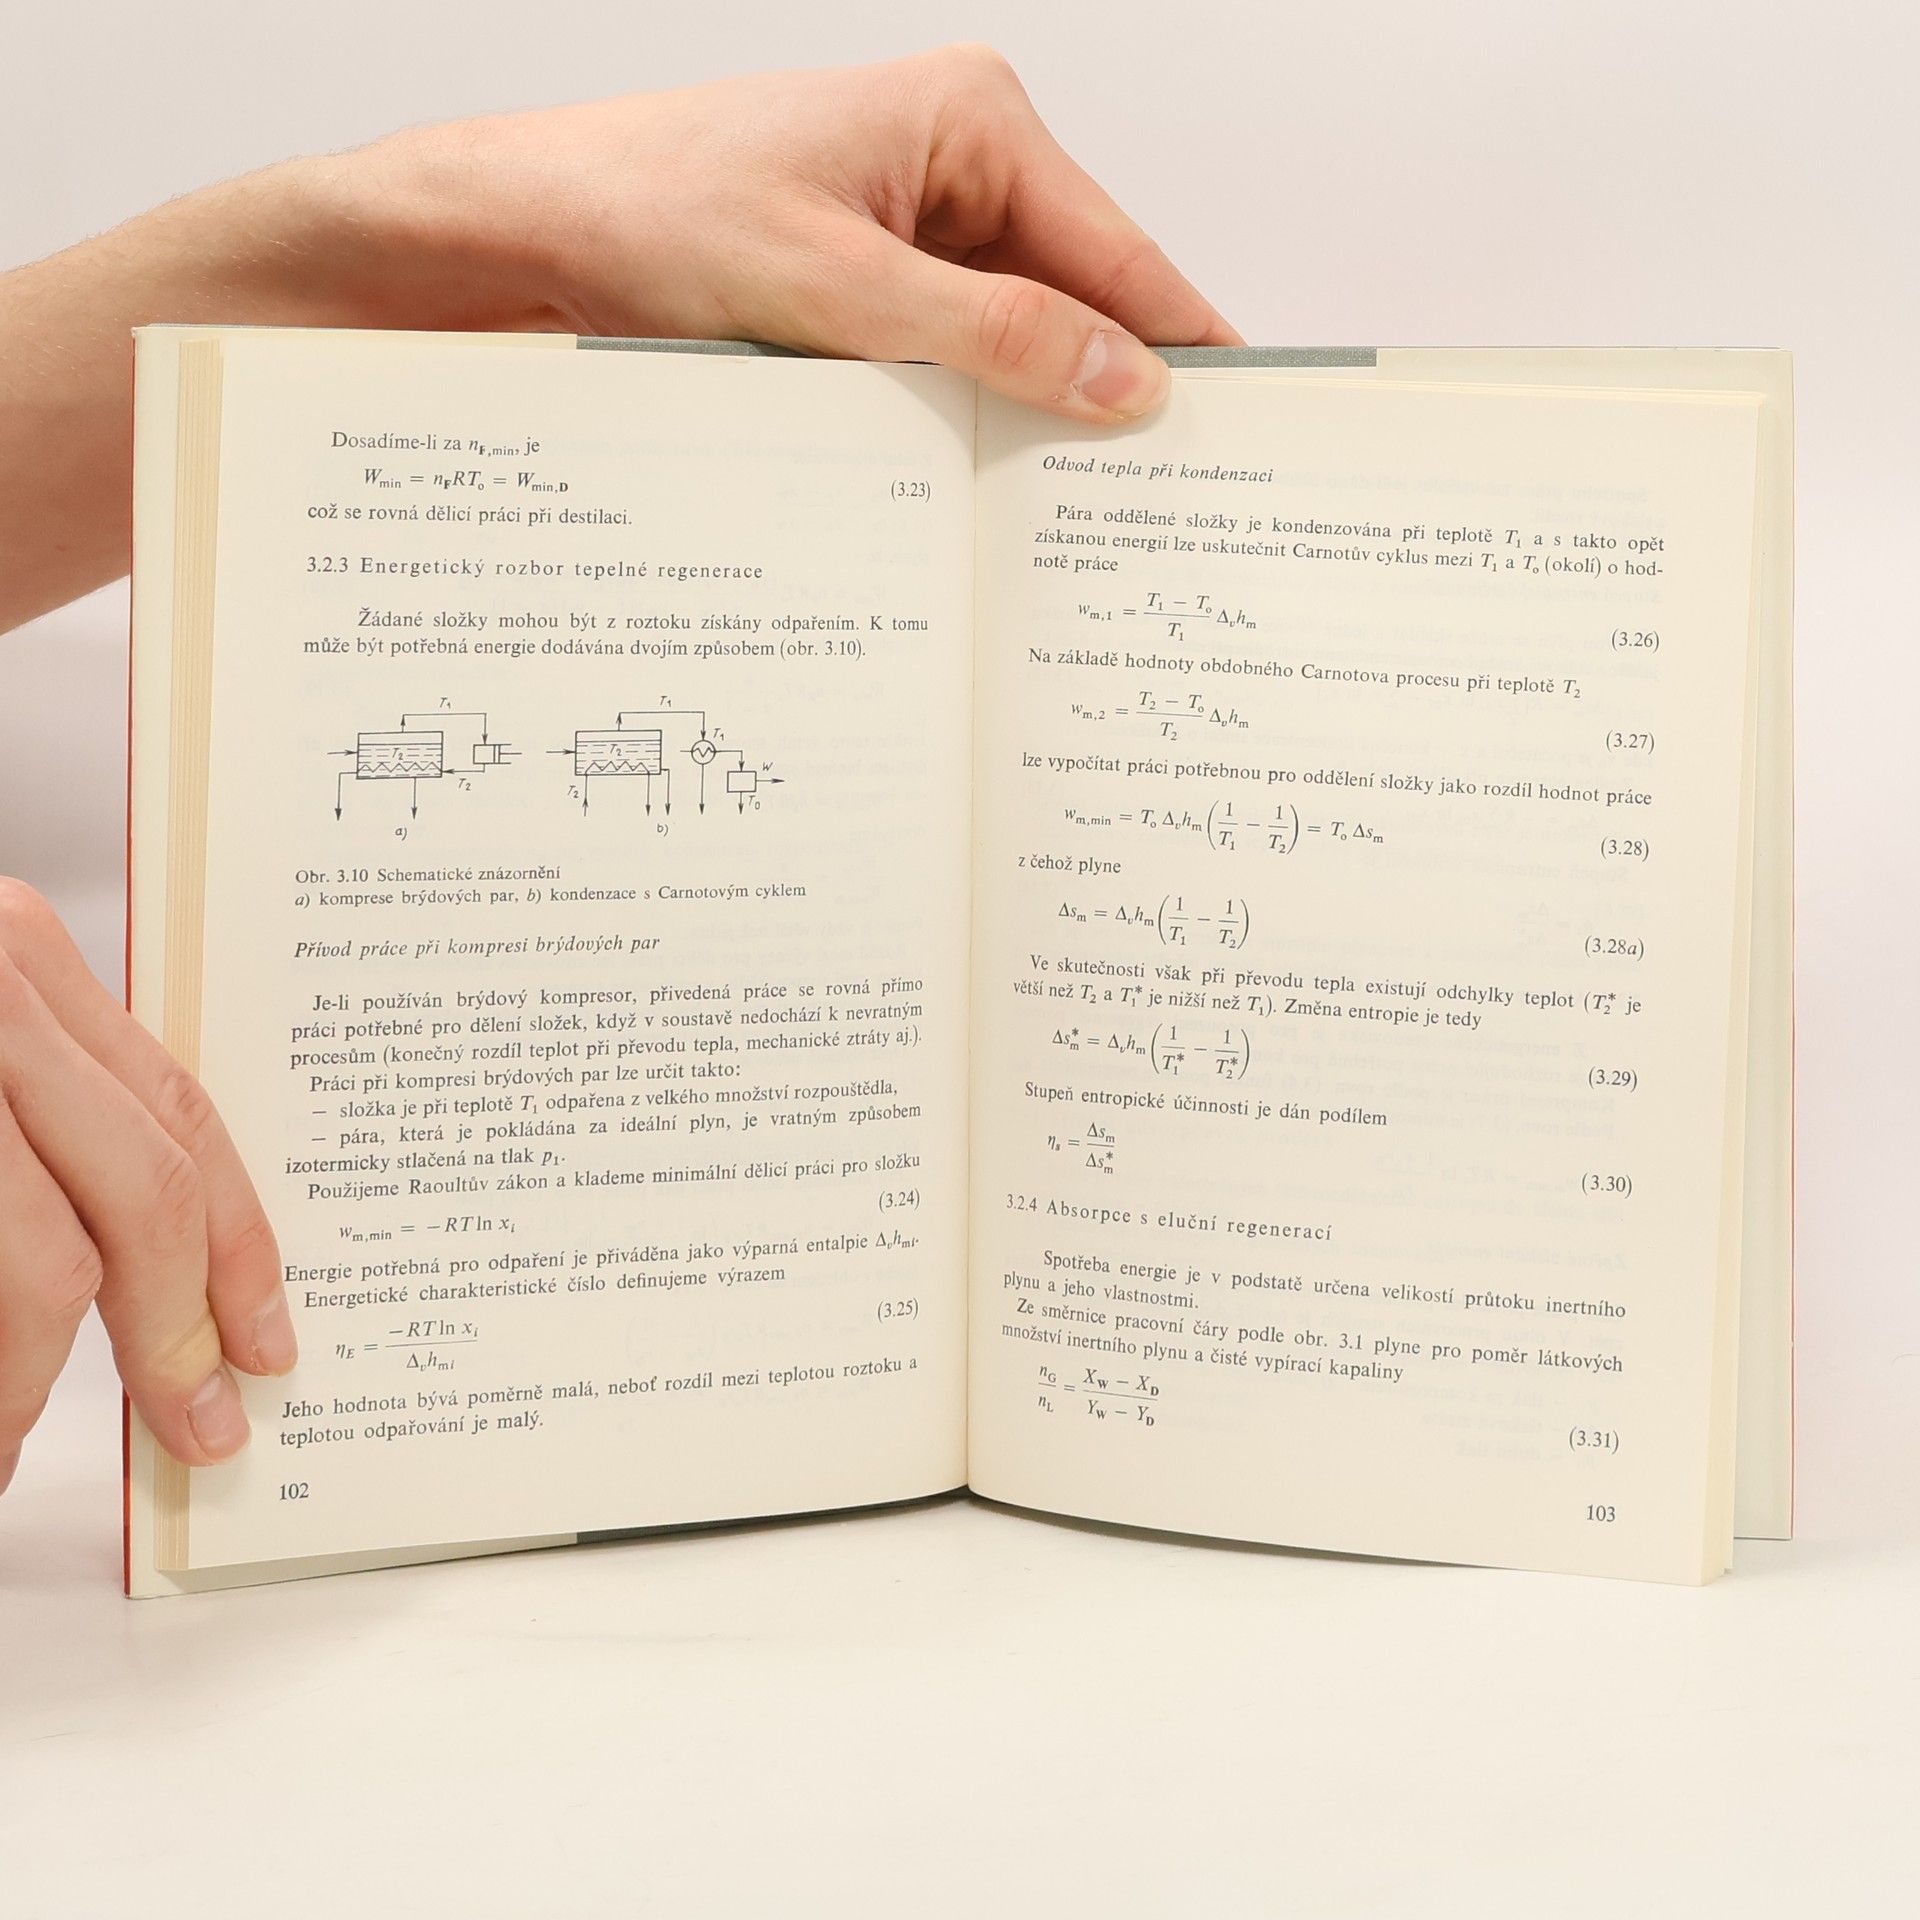 Dosadíme-li za n_F,min, je
W_min = n_F RT_o = W_min,D (3.23)
což se rovná dělicí práci při destilaci.
3.2.3 Energetický rozbor tepelné regenerace
Žádané složky mohou být z roztoku získány odpařením. K tomu
může být potřebná energie dodávána dvojím způsobem (obr. 3.10).
T1 T1
T2 T2 T1
T2 T2 W
T0
a) b)
Obr. 3.10 Schematické znázornění
a) komprese brýdových par, b) kondenzace s Carnotovým cyklem
Přívod práce při kompresi brýdových par
Je-li používán brýdový kompresor, přivedená práce se rovná přímo
práci potřebné pro dělení složek, když v soustavě nedochází k nevratným
procesům (konečný rozdíl teplot při převodu tepla, mechanické ztráty aj.).
Práci při kompresi brýdových par lze určit takto:
— složka je při teplotě T₁ odpařena z velkého množství rozpouštědla,
— pára, která je pokládána za ideální plyn, je vratným způsobem
izotermicky stlačená na tlak p₁.
Použijeme Raoultův zákon a klademe minimální dělicí práci pro složku
w_m,min = −RT ln x_i (3.24)
Energie potřebná pro odpaření je přiváděna jako výparná entalpie Δ_v h_mi.
Energetické charakteristické číslo definujeme výrazem
η_E = −RT ln x_i / Δ_v h_mi (3.25)
Jeho hodnota bývá poměrně malá, neboť rozdíl mezi teplotou roztoku a
teplotou odpařování je malý.
102
Odvod tepla při kondenzaci
Pára oddělené složky je kondenzována při teplotě T₁ a s takto opět
získanou energií lze uskutečnit Carnotův cyklus mezi T₁ a T_o (okolí) o hod-
notě práce
w_m,1 = (T₁ − T_o) / T₁ Δ_v h_m (3.26)
Na základě hodnoty obdobného Carnotova procesu při teplotě T₂
w_m,2 = (T₂ − T_o) / T₂ Δ_v h_m (3.27)
lze vypočítat práci potřebnou pro oddělení složky jako rozdíl hodnot práce
w_m,min = T_o Δ_v h_m (1/T₁ − 1/T₂) = T_o Δs_m (3.28)
z čehož plyne
Δs_m = Δ_v h_m (1/T₁ − 1/T₂) (3.28a)
Ve skutečnosti však při převodu tepla existují odchylky teplot (T₂* je
větší než T₂ a T₁* je nižší než T₁). Změna entropie je tedy
Δs_m* = Δ_v h_m (1/T₁* − 1/T₂*) (3.29)
Stupeň entropické účinnosti je dán podílem
η_s = Δs_m / Δs_m* (3.30)
3.2.4 Absorpce s eluční regenerací
Spotřeba energie je v podstatě určena velikostí průtoku inertního
plynu a jeho vlastnostmi.
Ze směrnice pracovní čáry podle obr. 3.1 plyne pro poměr látkových
množství inertního plynu a čisté vypírací kapaliny
n_G / n_L = (X_W − X_D) / (Y_W − Y_D) (3.31)
103